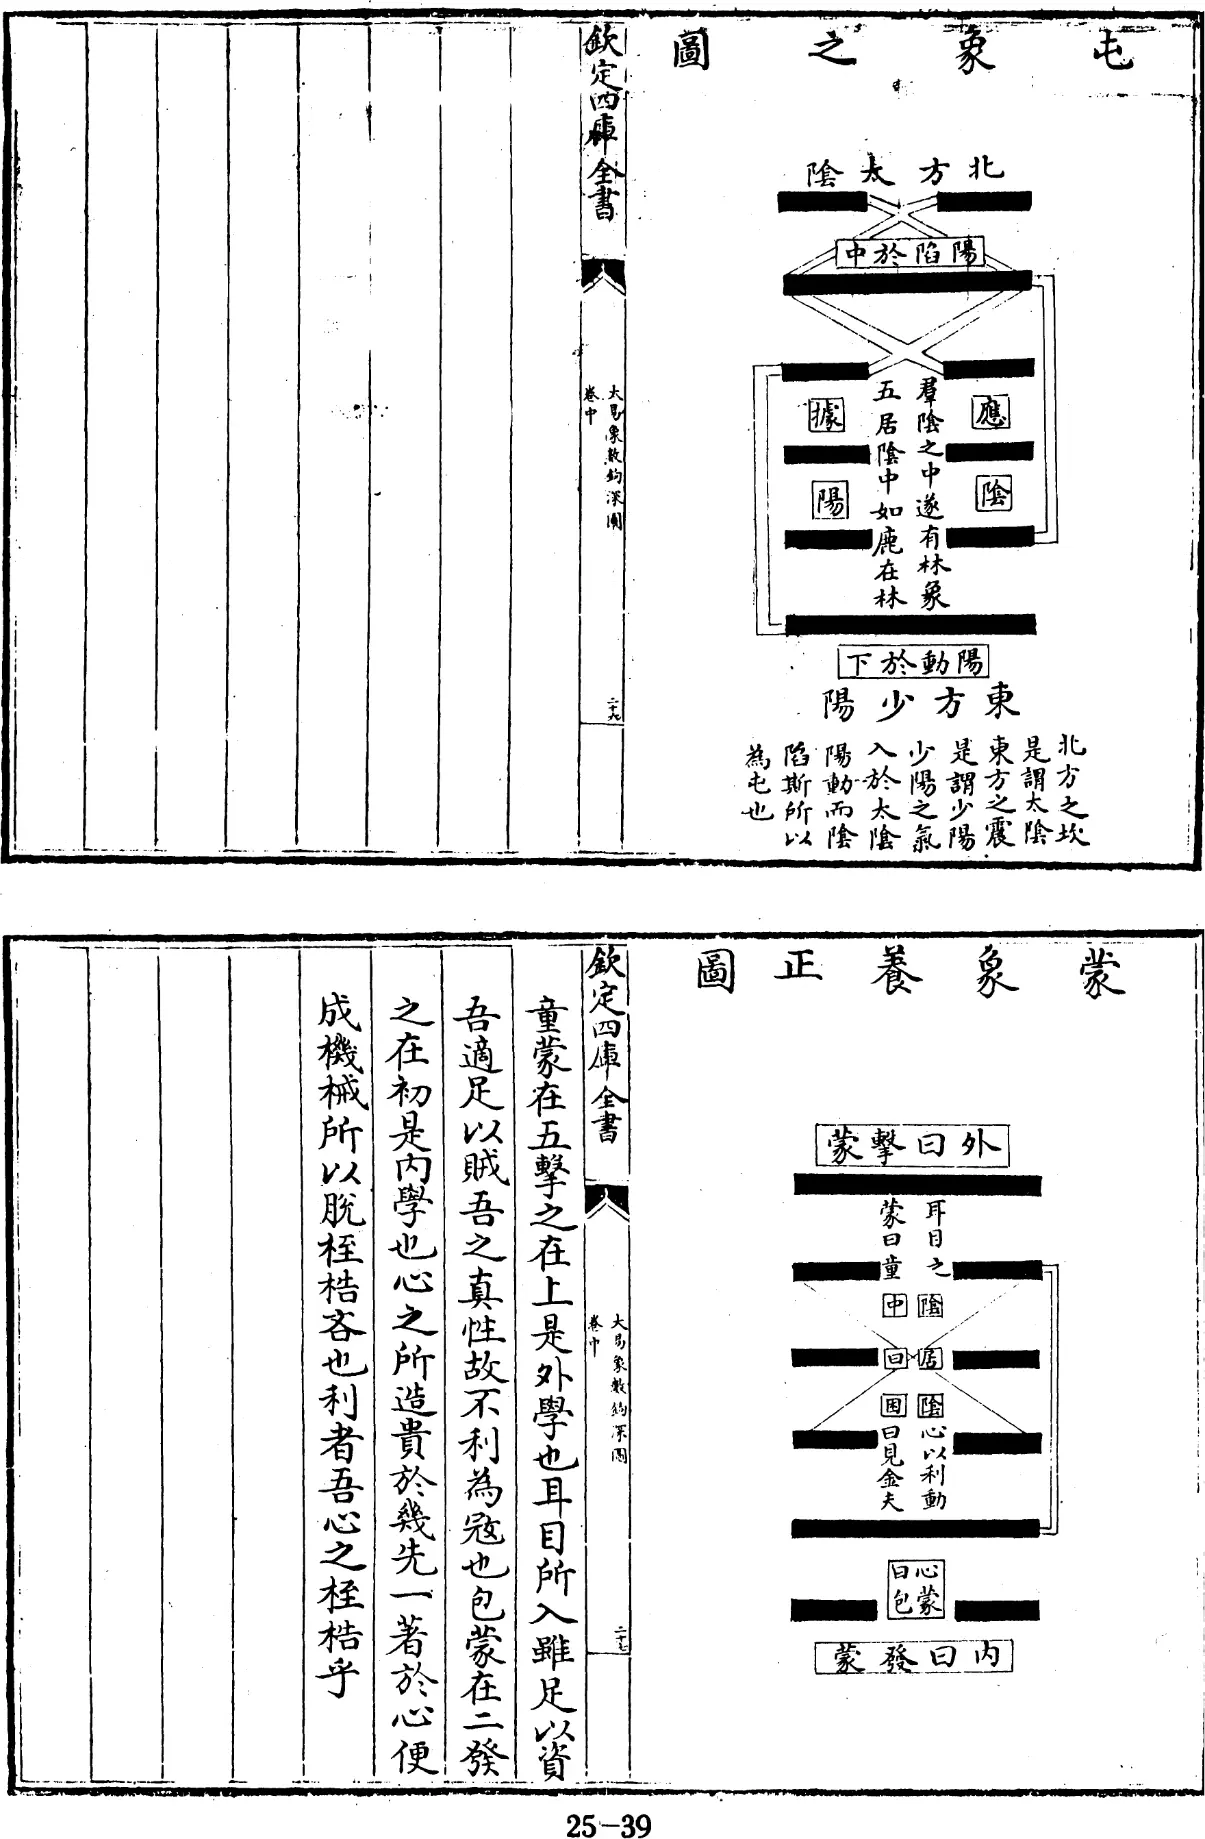 屯象之圖
北方太陰
陽陷於中
應陰
據陽
羣陰之中遂有林象
五居陰中如鹿在林
陽動於下
東方少陽
北方之坎
是謂太陰
東方之震
是謂少陽
少陽之氣
入於太陰
陽動而陰
陷斯所以
為屯也
欽定四庫全書
大易象數鈎深圖
卷中
蒙象養正圖
外曰擊蒙
耳目之
蒙曰童
陰居陰
中曰困
心以利動
曰見金夫
心蒙
曰包
内曰發蒙
欽定四庫全書
大易象數鈎深圖
卷中
童蒙在五擊之在上是外學也耳目所入雖足以資
吾適足以賊吾之真性故不利為宼也包蒙在二發
之在初是内學也心之所造貴於幾先一著於心便
成機械所以脱桎梏吝也利者吾心之桎梏乎
25-39